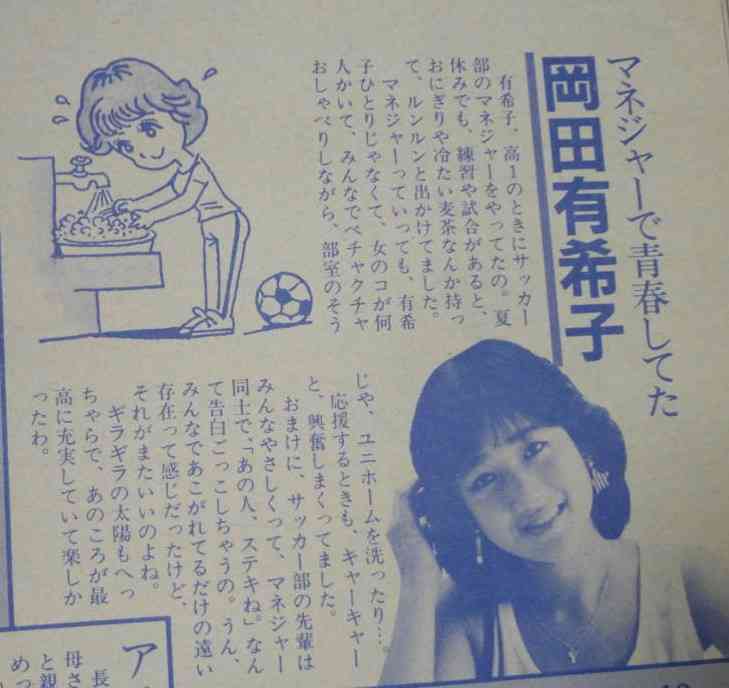 マネジャーで青春してた
岡田有希子
有希子、高1のときにサッカー
部のマネジャーをやってたの。夏
休みでも、練習や試合があると、
おにぎりや冷たい麦茶なんか持っ
て、ルンルンと出かけてました。
マネジャーっていっても、有希
子ひとりじゃなくて、女のコが何
人かいて、みんなでペチャクチャ
おしゃべりしながら、部室のそう
じゃ、ユニホームを洗ったり…。
応援するときも、キャーキャー
と、興奮しまくってました。
おまけに、サッカー部の先輩は
みんなやさしくって、マネジャー
同士で、「あの人、ステキね」なん
て告白ごっこしちゃうの。うん、
みんなであこがれてるだけの遠い
存在って感じだったけど、
それがまたいいのよね。
ギラギラの太陽もへっ
ちゃらで、あのころが最
高に充実していて楽しか
ったわ。
ア
長
母さ
と親
めっ